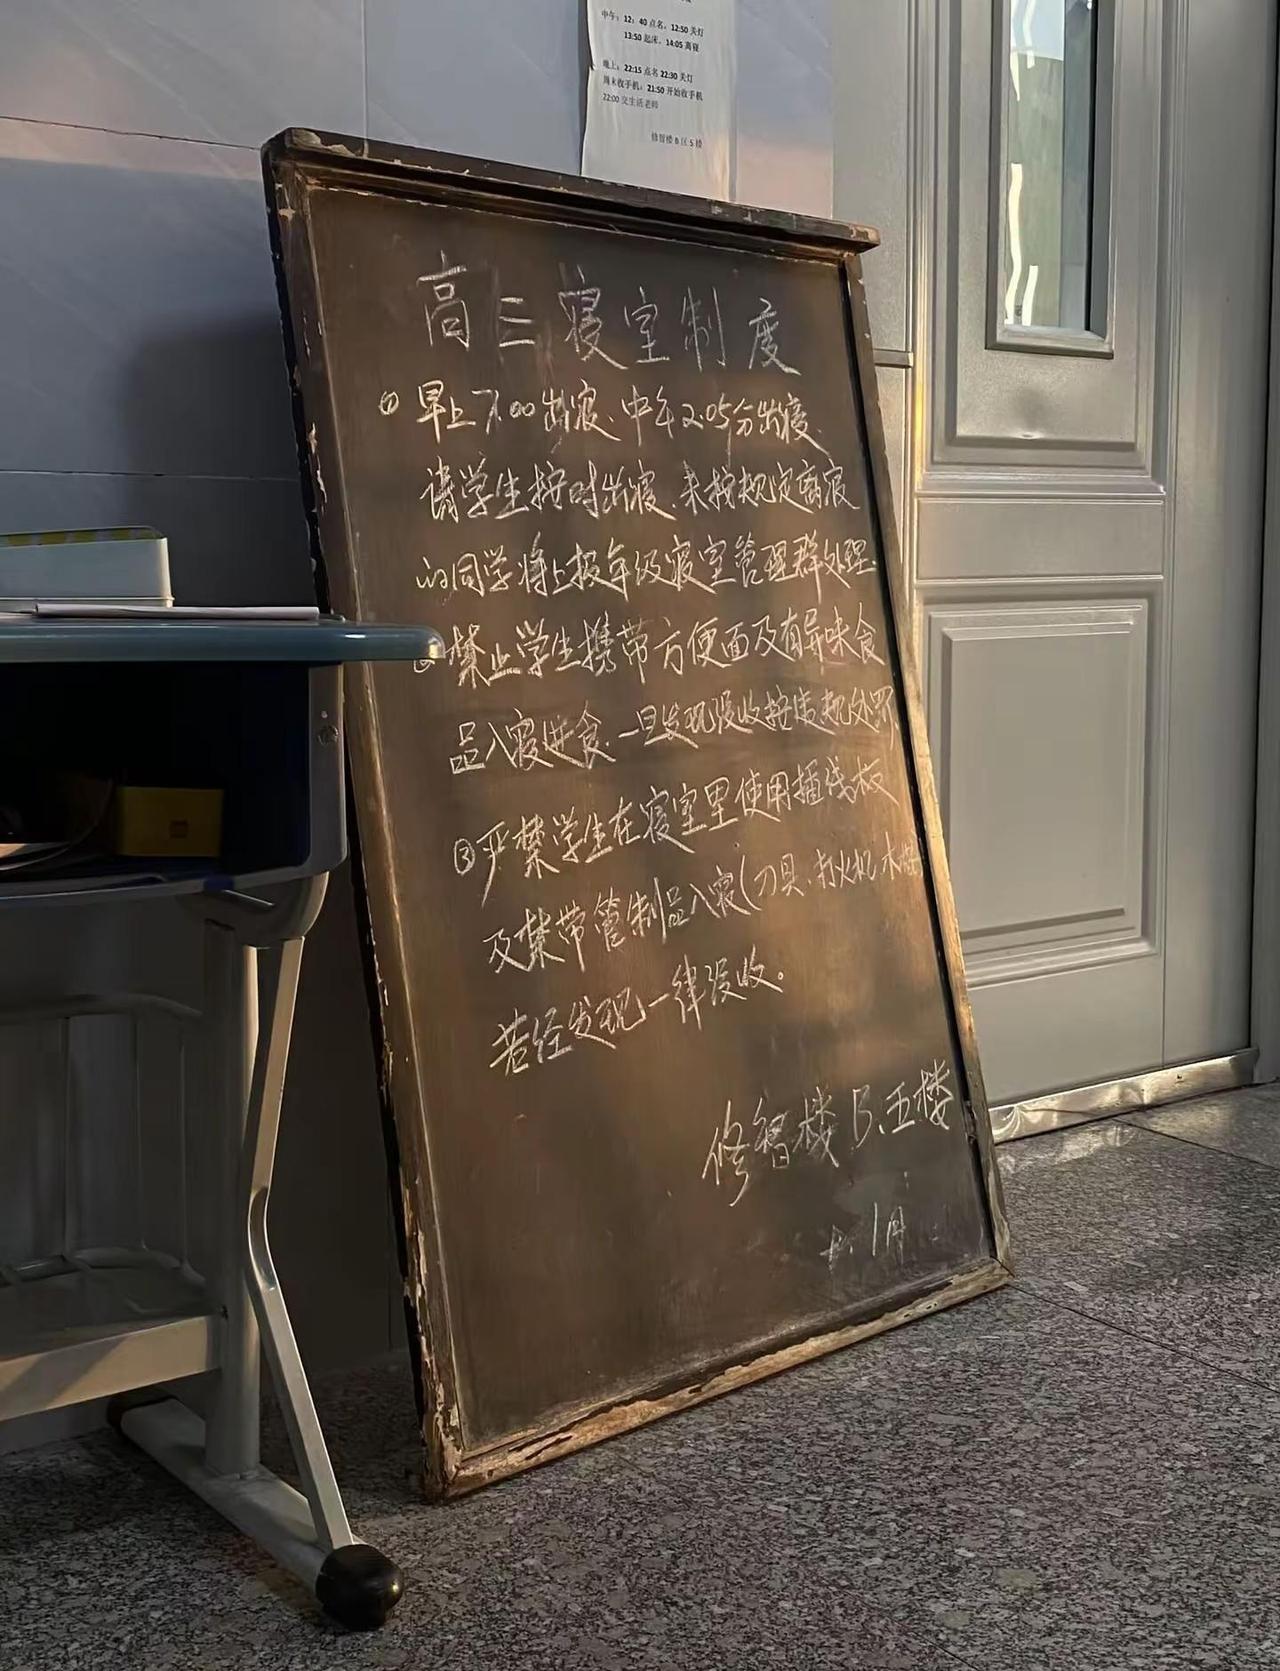 中午：12：40 点名，12:50 关灯
13:50 起床，14:05 离寝
晚上：22:15 点名 22:30 关灯
周末收手机：21:50 开始收手机
22:00 交生活老师
修智楼 B 区 5 楼
高三寝室制度
① 早上7:00出寝、中午2.05分出寝、
请学生按时出寝、未按规定离寝
的同学将上报年级寝室管理群处理.
② 禁止学生携带方便面及有异味食
品入寝进食.一旦发现没收按违规处罚
③ 严禁学生在寝室里使用插线板
及禁带管制品入寝(刀具、打火机、水
若经发现一律没收。
修智楼B.五楼
1月